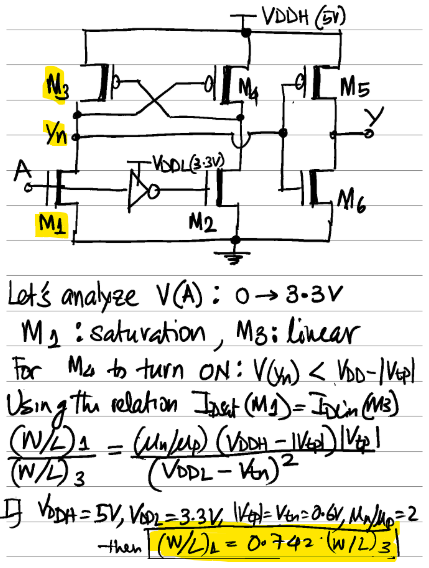 VDDH (5V)
M3
M4
M5
Yn
Y
A
VDDL(3.3V)
M6
M1
M2
Let's analyze V(A) : 0 → 3.3V
M1 : saturation, M3: linear
For M4 to turn ON: V(Yn) < VDD-|Vtp|
Using the relation IDsat (M1) = IDlin (M3)
(W/L)1 / (W/L)3 = (μn/μp) (VDDH - |Vtp|) |Vtp| / (VDDL - Vtn)²
If VDDH = 5V, VDDL = 3.3V, |Vtp| = Vtn = 0.6V, μn/μp = 2
then (W/L)1 = 0.742 · (W/L)3